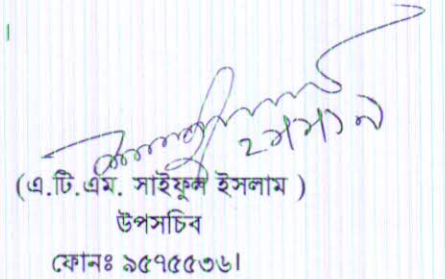 ।
(এ.টি.এম. সাইফুল ইসলাম )
উপসচিব
ফোনঃ ৯৫৭৫৫৩৬।